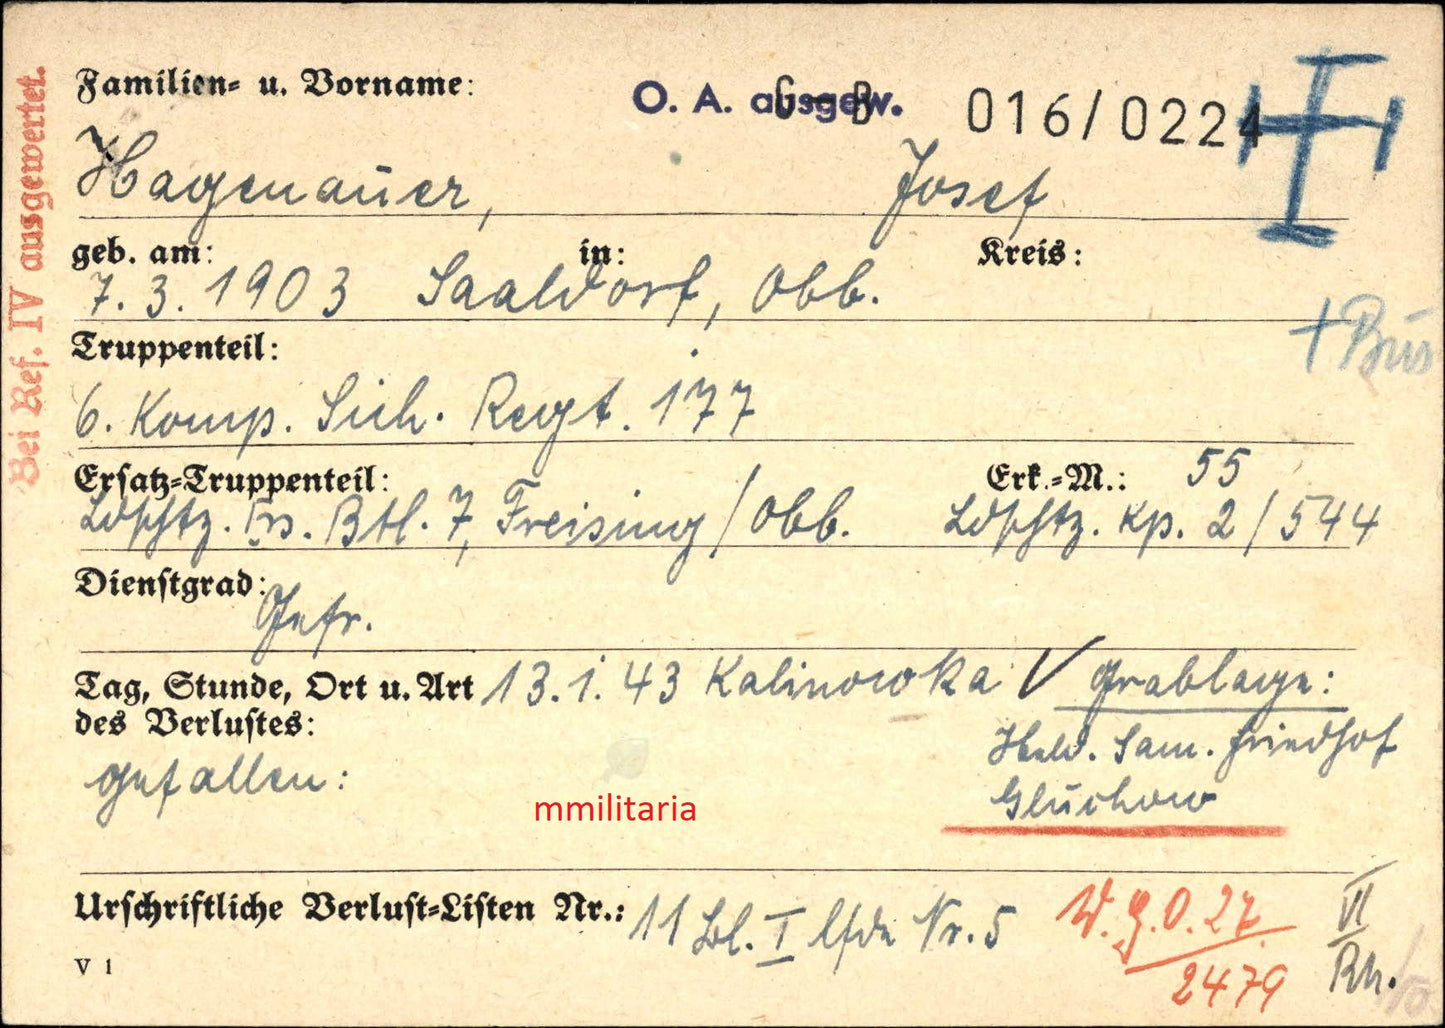 Bei Ref. IV ausgewertet.
Familien- u. Vorname:
O. A. ausgew.
G - B
016/0224
Hagenauer, Josef
geb. am: in: Kreis:
7. 3. 1903 Saaldorf, Obb.
Truppenteil:
6. Komp. Sich. Regt. 177
Ersatz-Truppenteil: Erk.-M.: 55
Ldsschtz. Ers. Btl. 7, Freising / Obb. Ldsschtz. Kp. 2 / 544
Dienstgrad:
Gefr.
Tag, Stunde, Ort u. Art 13. 1. 43 Kalinowka Grablage:
des Verlustes: Held. Sam. Friedhof
gefallen: Gluchow
mmilitaria
Urschriftliche Verlust-Listen Nr.: 11 Bl. I lfde Nr. 5
W. G. O. 27
2479
VI
Rh.
V 1